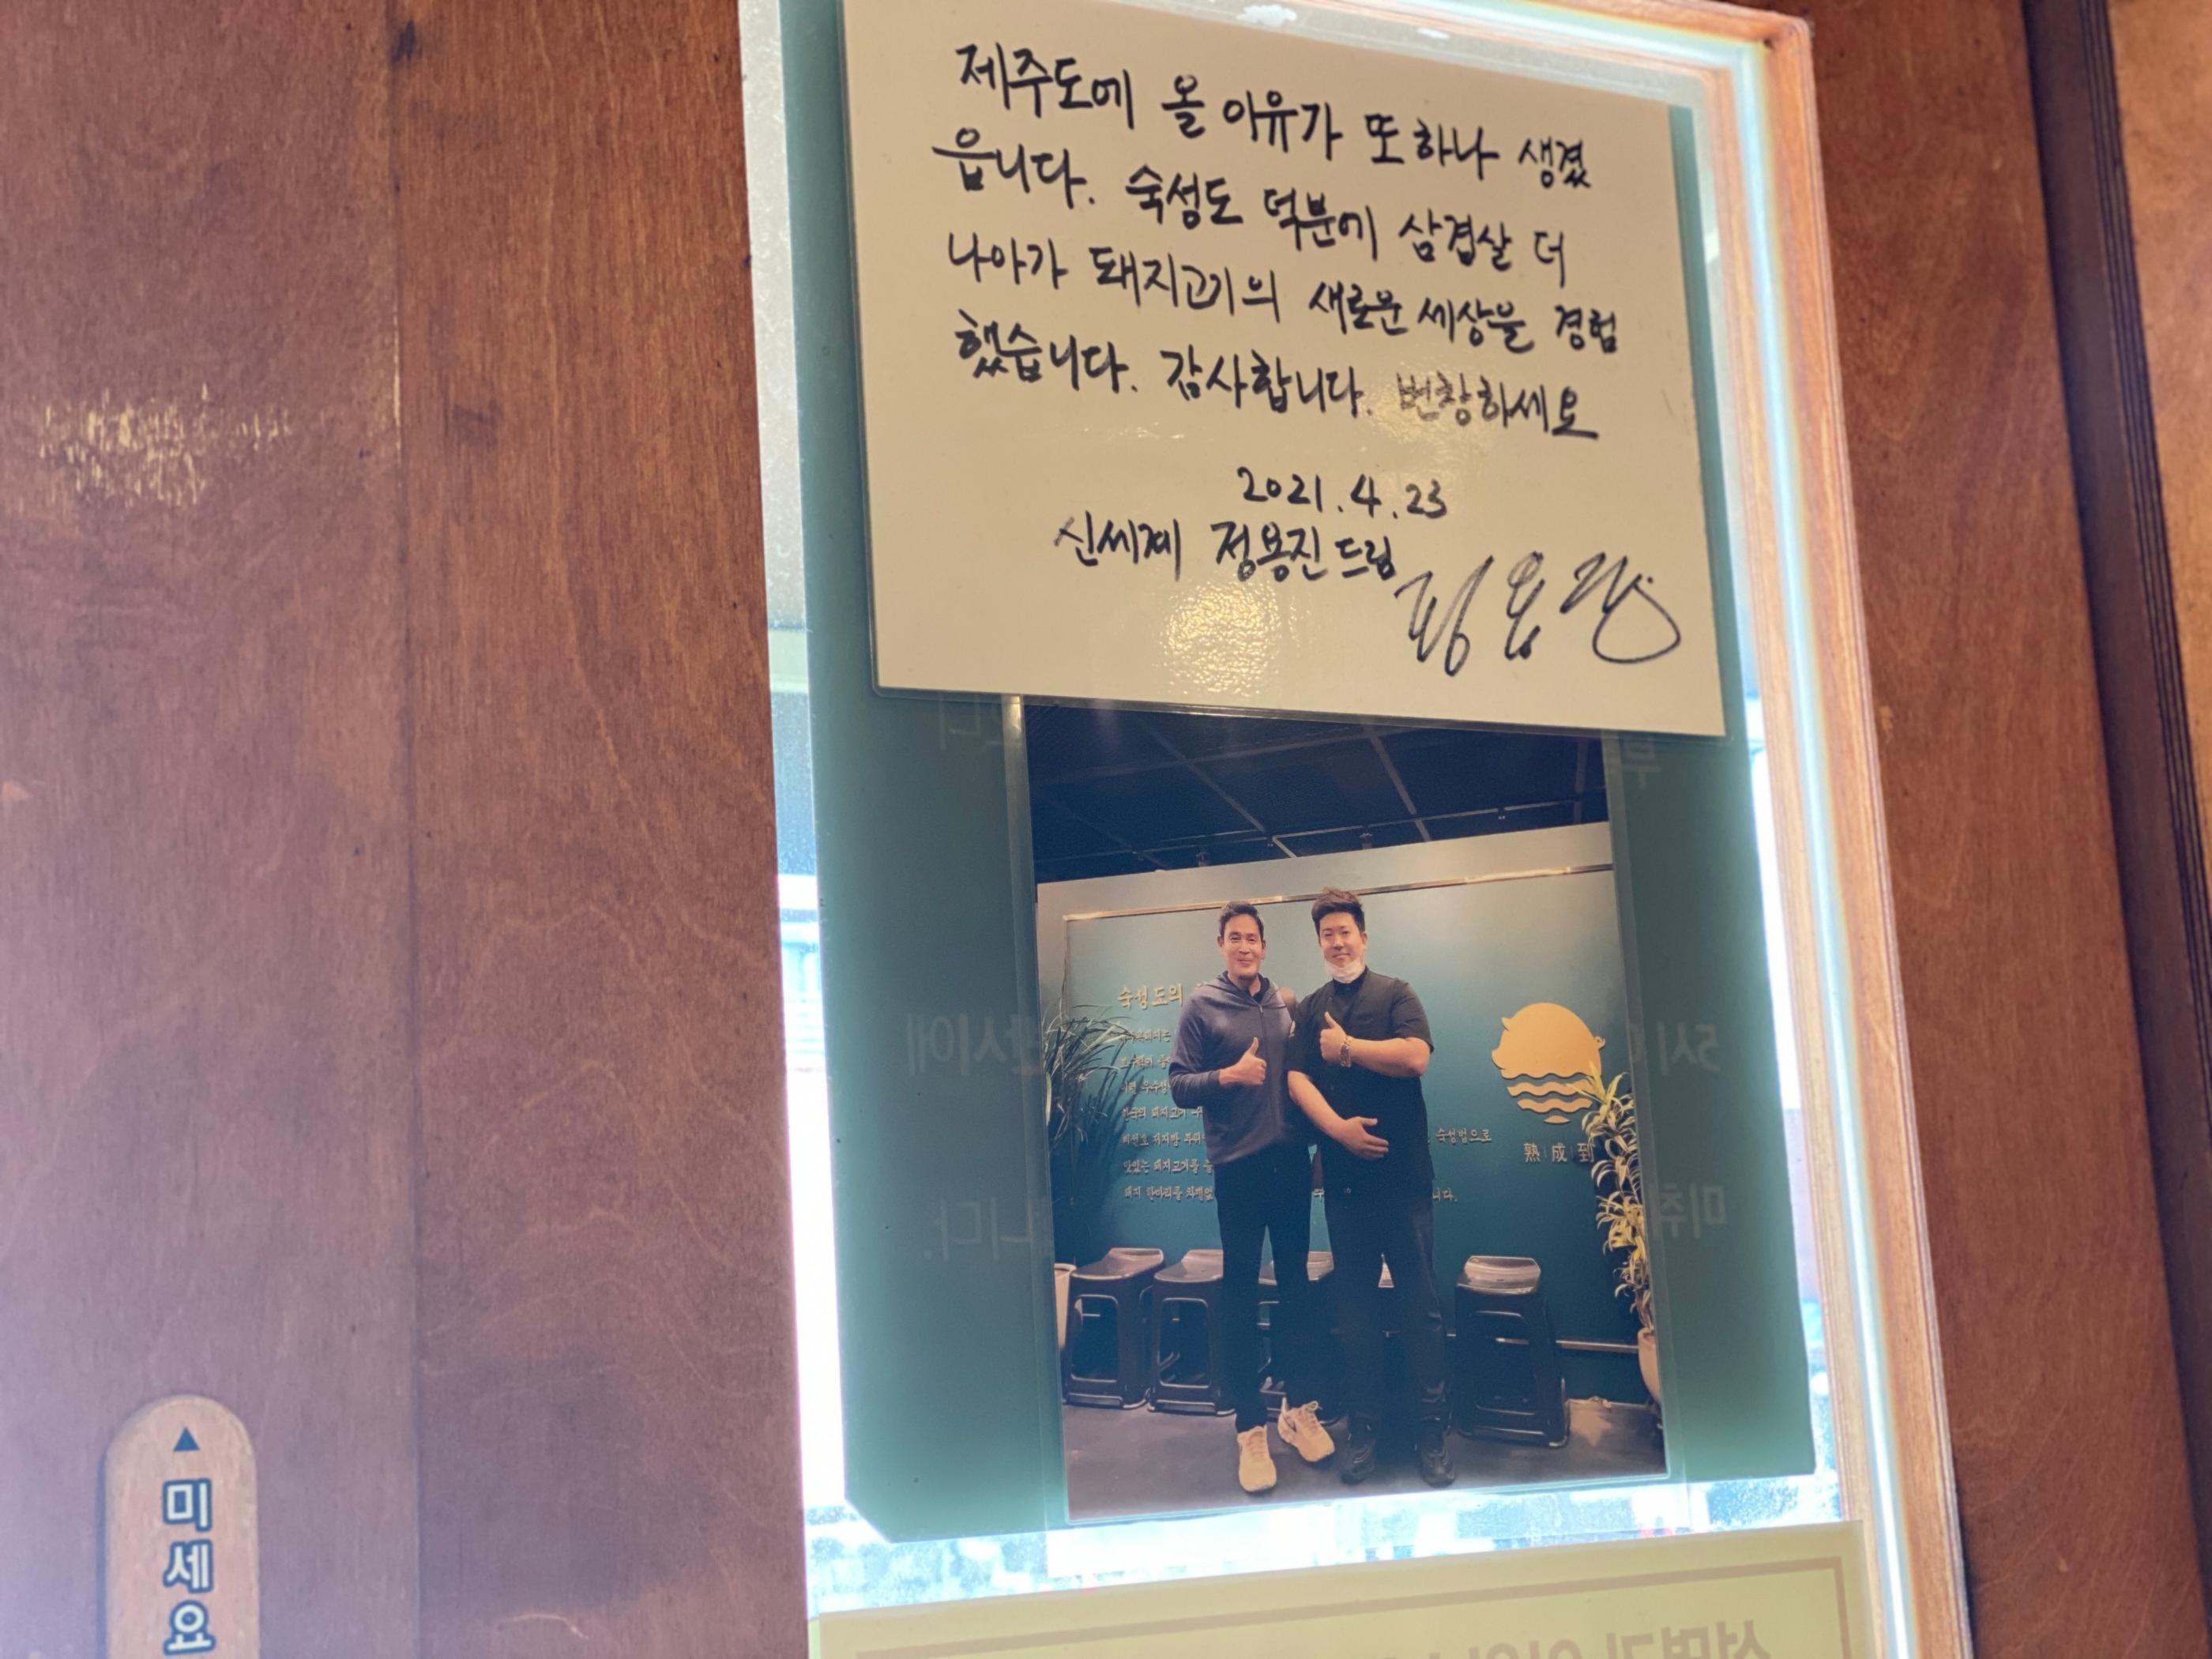 제주도에 올 이유가 또하나 생겼
읍니다. 숙성도 덕분에 삼겹살 더
나아가 돼지고기의 새로운 세상을 경험
했습니다. 감사합니다. 번창하세요
2021.4.23
신세계 정용진 드림
정용진
숙성도의
숙성법으로
맛있는 돼지고기를
니다.
熟成到
▲
미세요